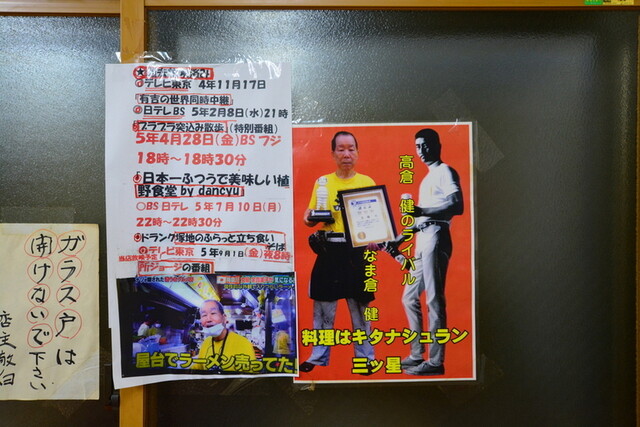 テレビ東京 4年11月17日
有吉の世界同時中継
日テレBS 5年2月8日(水)21時
ブラブラ突込み散歩(特別番組)
5年4月28日(金)BSフジ
18時～18時30分
日本一ふつうで美味しい植
野食堂 by dancyu
○BS日テレ 5年7月10日(月)
22時～22時30分
ドランク塚地のふらっと立ち食いそば
テレビ東京 5年9月1日(金)夜8時
所ジョージの番組
屋台でラーメン売ってた
高倉 健のライバル
なま倉 健
料理はキタナシュラン
三ッ星
ガラス戸は
開けないで下さい
店主敬白